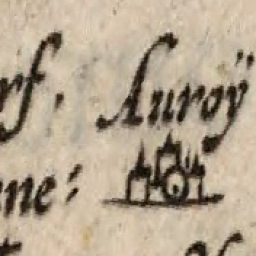 rf. Auroÿ
ne: